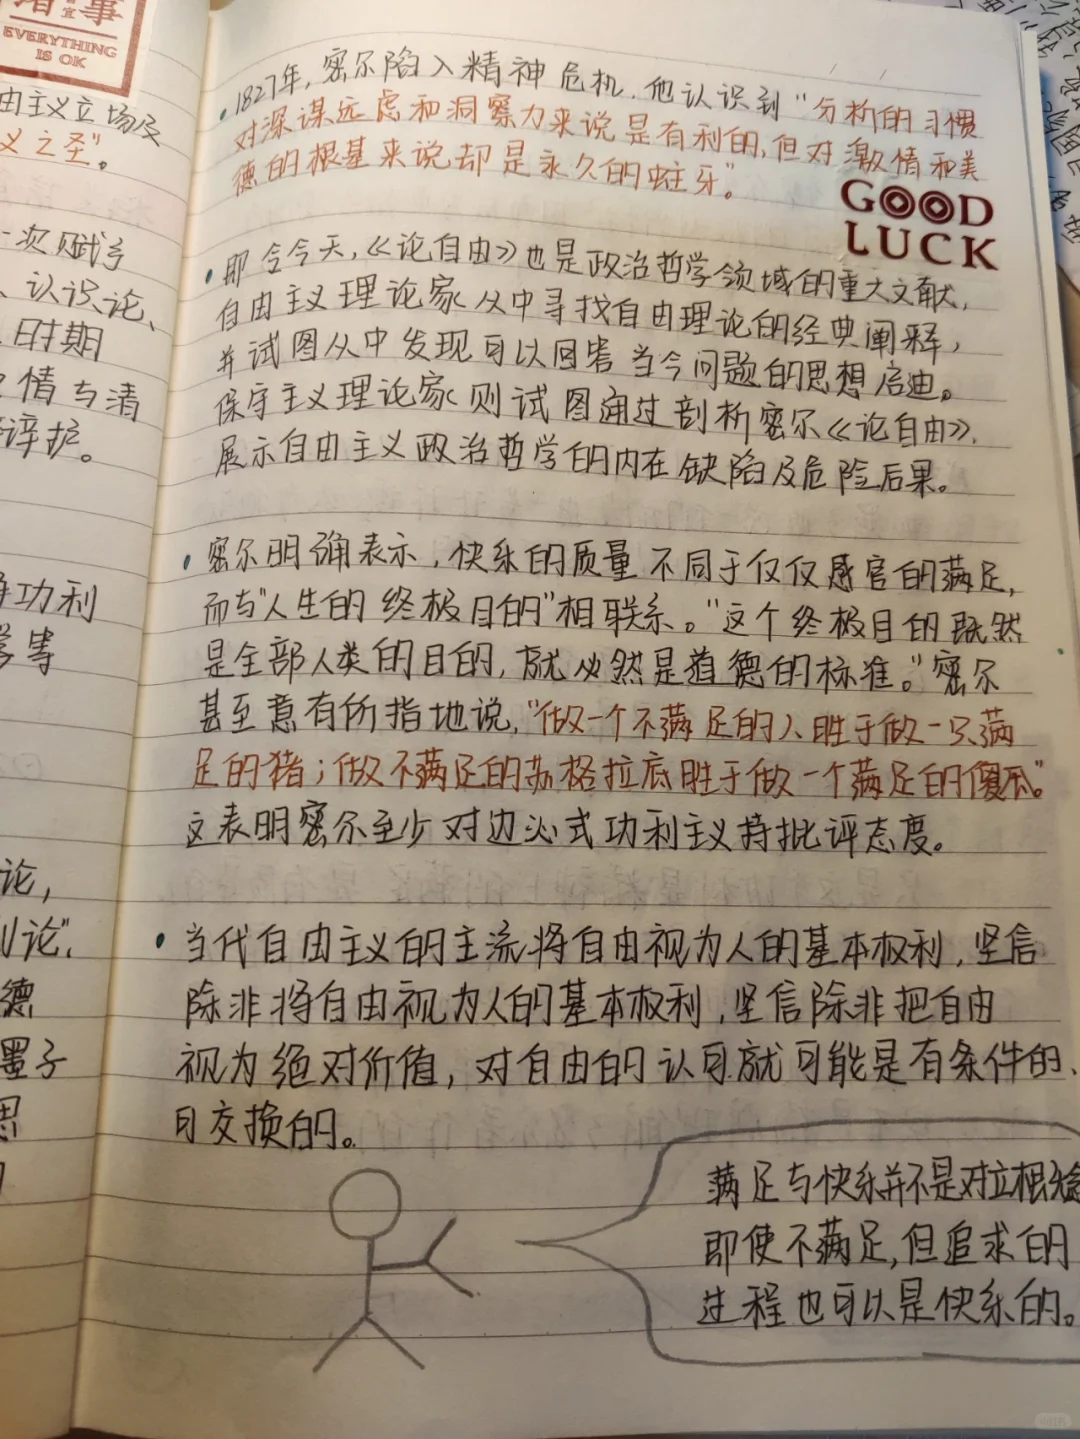 EVERYTHING
IS OK
由主义立场及
义之圣”。
一次赋予
、认识论、
时期
情与清
辩护。
功利
学等
论，
利论”，
德
墨子
思
1827年，密尔陷入精神危机，他认识到“分析的习惯
对深谋远虑和洞察力来说是有利的，但对激情和美
德的根基来说却是永久的蛀牙”。
GOOD
LUCK
即令今天，《论自由》也是政治哲学领域的重大文献，
自由主义理论家从中寻找自由理论的经典阐释，
并试图从中发现可以回答当今问题的思想启迪。
保守主义理论家则试图通过剖析密尔《论自由》，
展示自由主义政治哲学的内在缺陷及危险后果。
密尔明确表示，快乐的质量不同于仅仅感官的满足，
而与“人生的终极目的”相联系。“这个终极目的既然
是全部人类的目的，就必然是道德的标准。”密尔
甚至意有所指地说，“做一个不满足的人胜于做一只满
足的猪；做不满足的苏格拉底胜于做一个满足的傻瓜”
这表明密尔至少对边沁式功利主义持批评态度。
当代自由主义的主流将自由视为人的基本权利，坚信
除非将自由视为人的基本权利，坚信除非把自由
视为绝对价值，对自由的认可就可能是有条件的、
可交换的。
满足与快乐并不是对立概念
即使不满足，但追求的
过程也可以是快乐的。